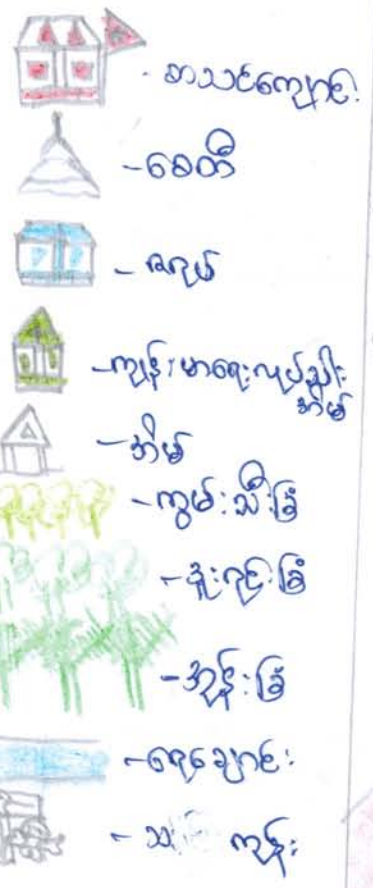 - စာသင်ကျောင်း
- စေတီ
- ဇရပ်
- ကျန်းမာရေးလုပ်သား
အိမ်
- အိမ်
- ကွမ်းသီးခြံ
- ဒူးရင်းခြံ
- အုန်းခြံ
- ရေချောင်း